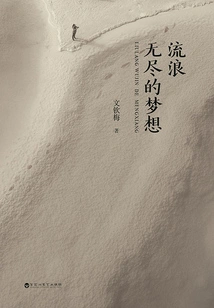 流浪
无尽的梦想
LIULANG WUJIN DE MENGXIANG
文钦梅
著